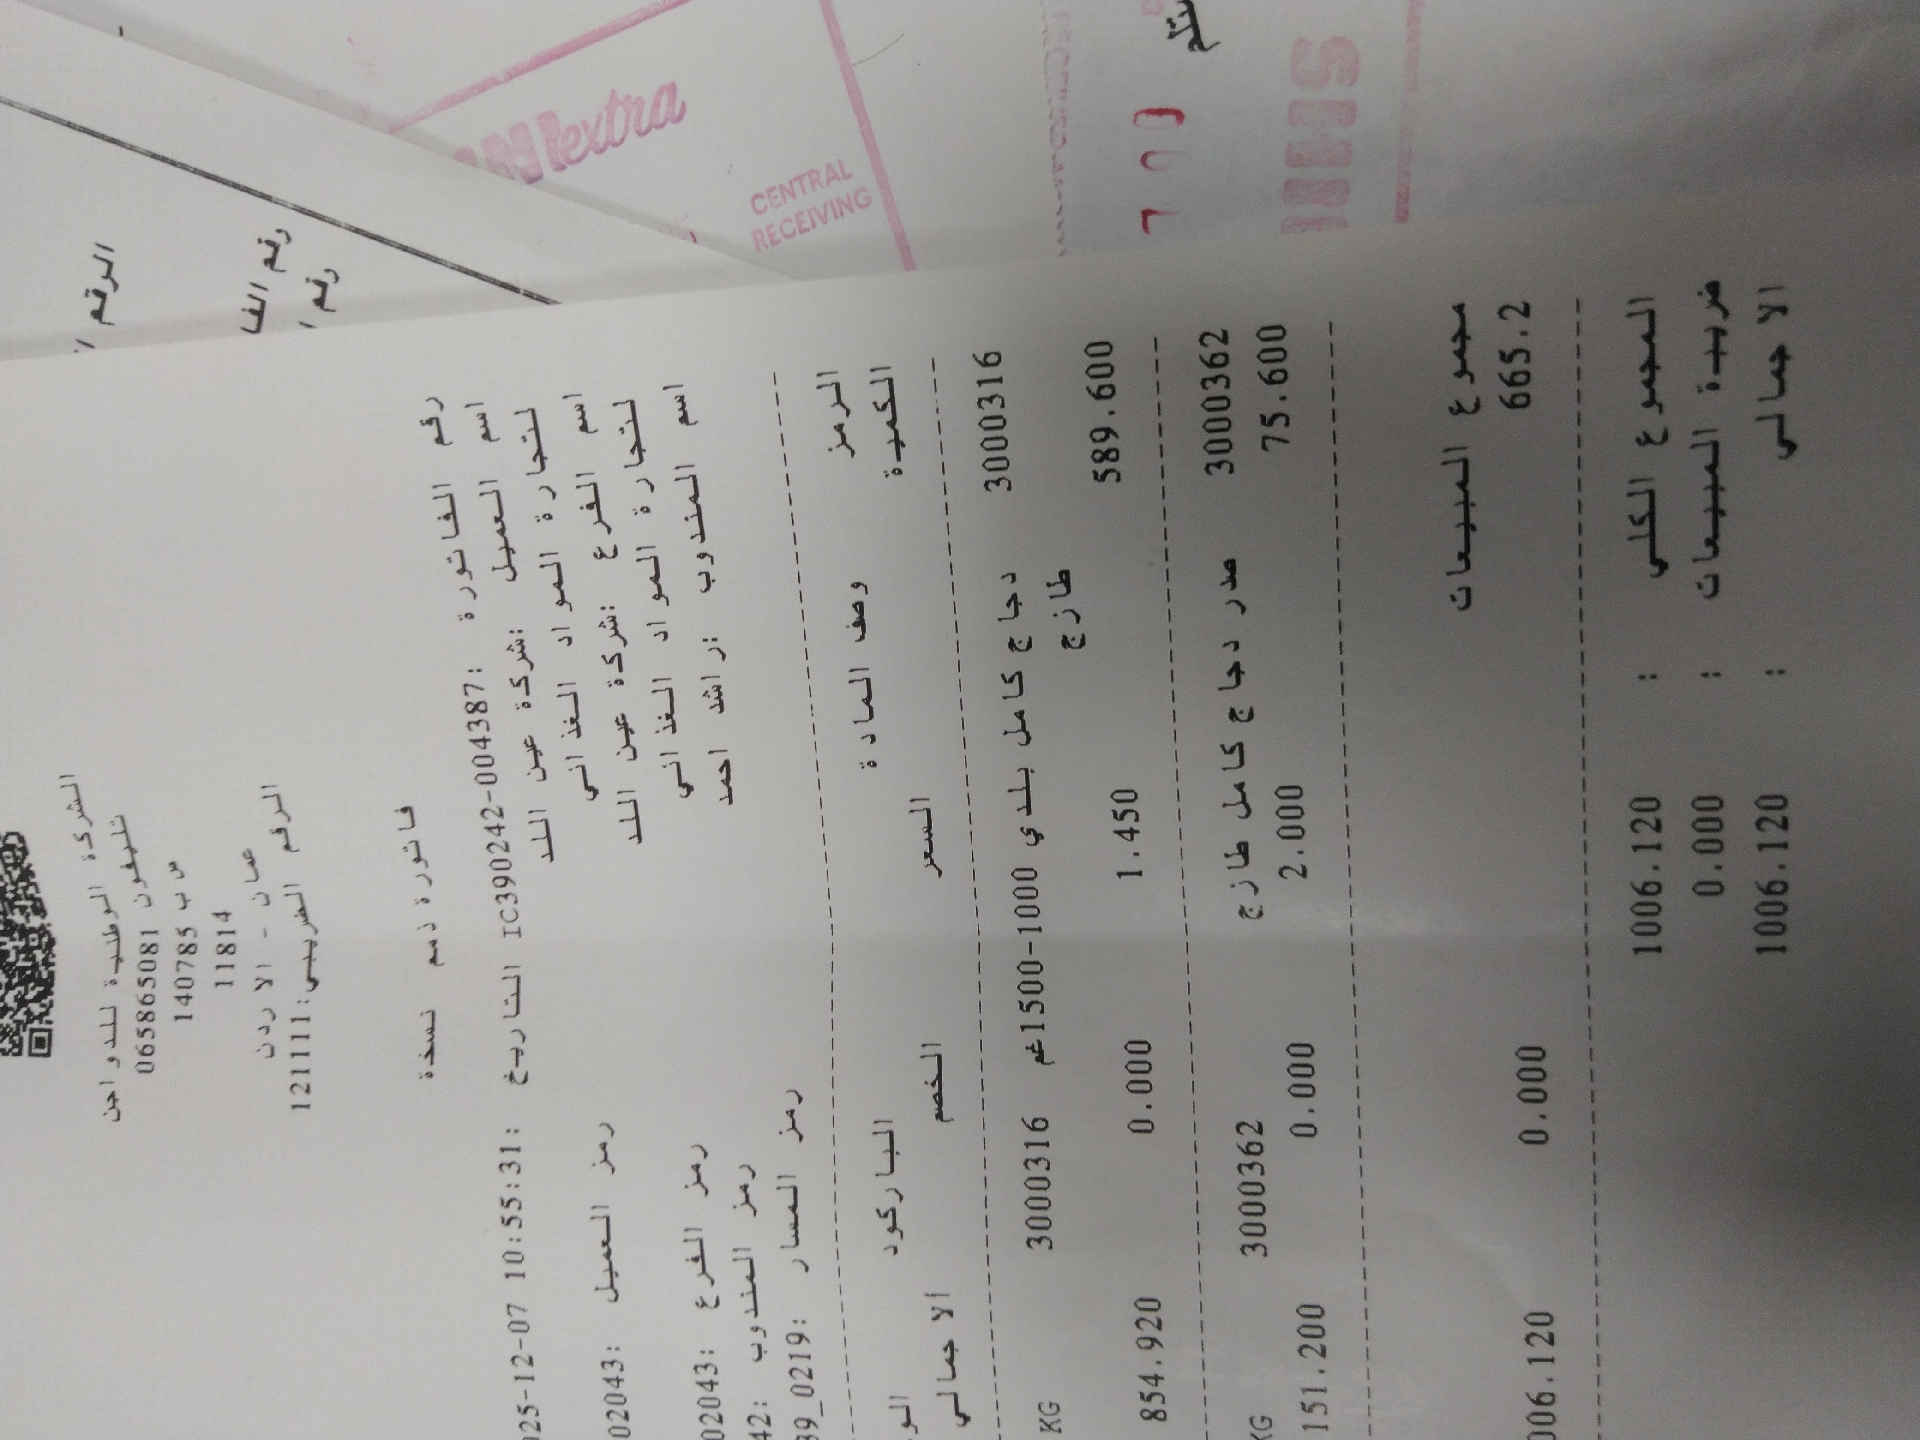 الشركة الوطنية للدواجن
تليفون 065865081
ص ب 140785
11814
عمان - الاردن
الرقم الضريبي:121111
فاتورة ذمم نسخة
رقم الفاتورة :IC390242-004387 التاريخ :025-12-07 10:55:31
اسم العميل :شركة عين اللد
لتجارة المواد الغذائي
رمز العميل :02043
اسم الفرع :شركة عين اللد
لتجارة المواد الغذائي
رمز الفرع :02043
اسم المندوب :راشد احمد
رمز المندوب :42
رمز المسار :39_0219
الرمز وصف المادة الباركود
الكمية السعر الخصم الاجمالي
3000316 دجاج كامل بلدي 1000-1500غم 3000316 KG
طازج
589.600 1.450 0.000 854.920
3000362 صدر دجاج كامل طازج 3000362 KG
75.600 2.000 0.000 151.200
مجموع المبيعات
665.2 0.000 006.120
المجموع الكلي : 1006.120
ضريبة المبيعات : 0.000
الاجمالي : 1006.120
الرقم
رقم الفا
رقم ا
extra
CENTRAL
RECEIVING